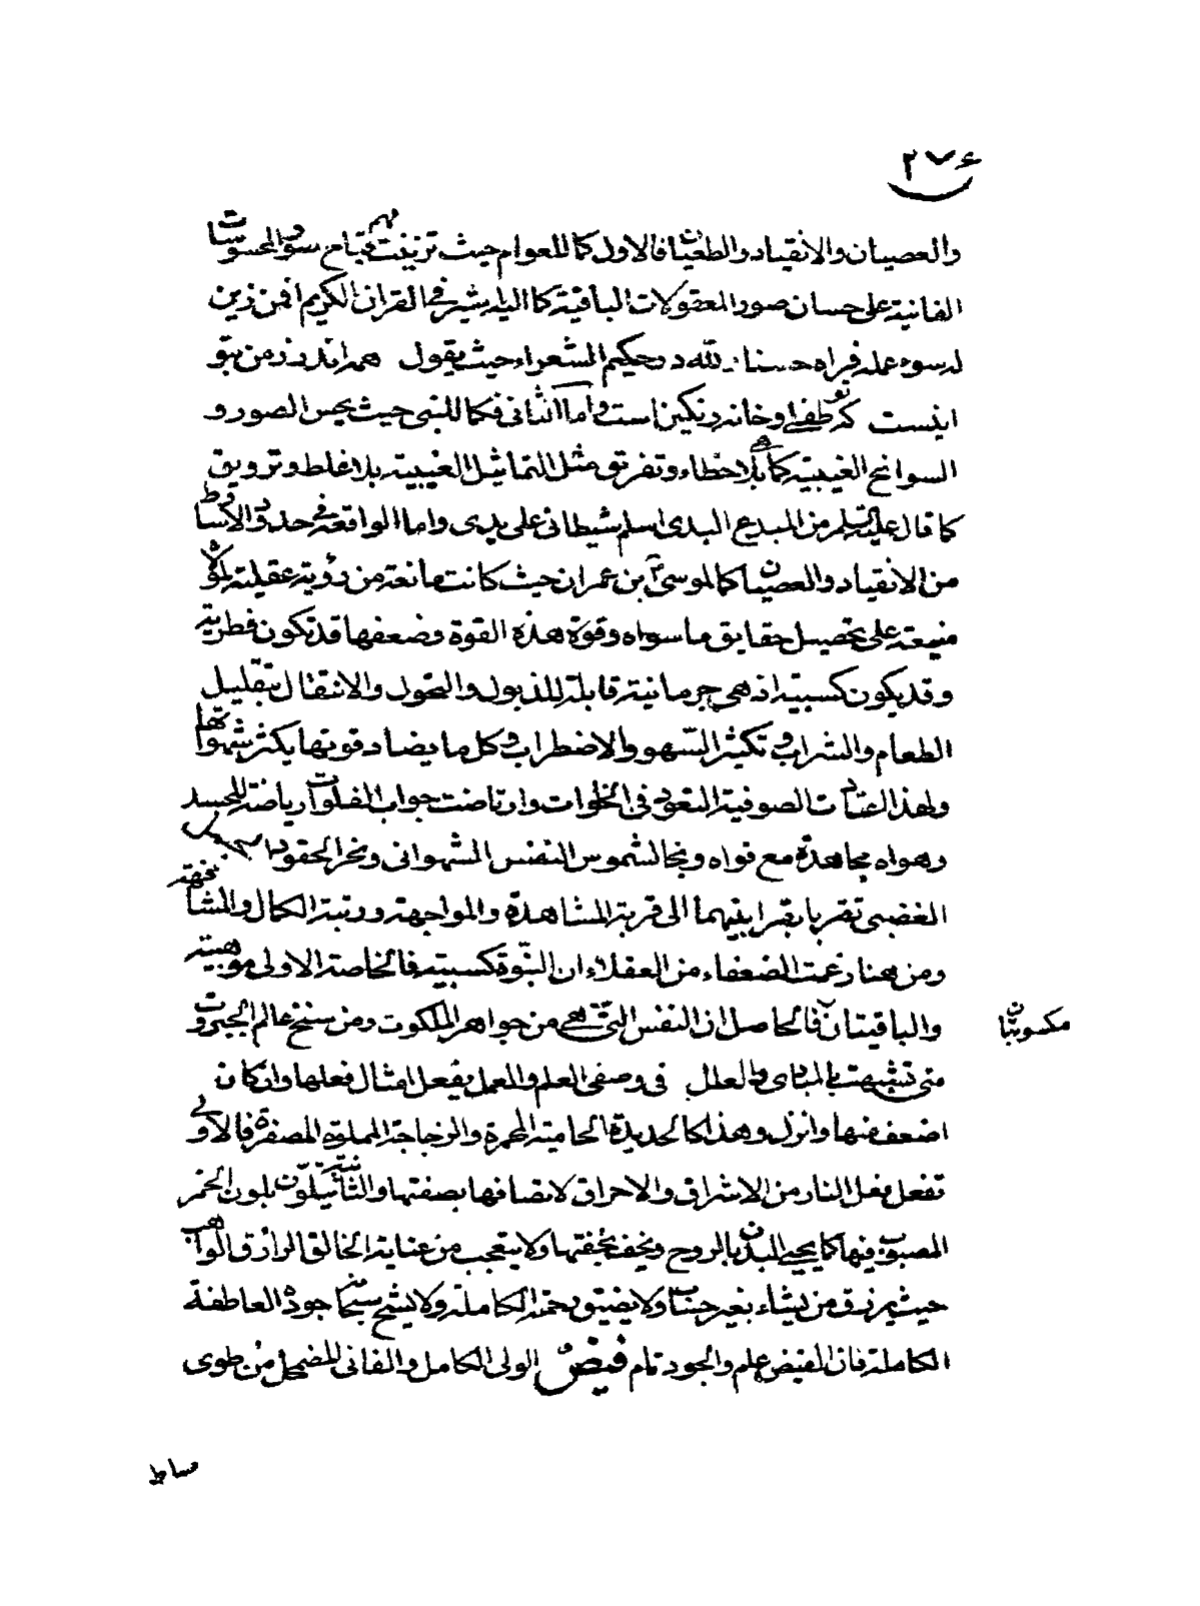 ٢٧٦
والعصيان والانقياد والطغيان فالاول كما للعوام حيث تزينت لهم قبايح صور المحسوسات
الفانية على حسان صور المعقولات الباقية كما اليه يشير في القران الكريم افمن زين
له سوء عمله فراه حسنا لله در حكيم الشعراء حيث يقول همه اندرز من بتو
اينست كه تو طفلى و خانه رنكين است واما الثانى فكما للنبى حيث يحس الصور و
السوانح الغيبية كما هى بلا خطاء وتفرق مثل التماثيل الغيبية بلا اغلاط وترويق
كما قال عليه السلم من المبدع البدى اسلم شيطانى على يدى واما الواقعة فى حدود الاوساط
من الانقياد والعصيان كما لموسى بن عمران حيث كانت مانعة من رؤية عقيلة
منيعة على تحصيل حقايق ما سواه وقوة هذه القوة وضعفها قد تكون فطرية
وقد يكون كسبية اذ هى جرمانية قابلة للذبول والتحول والانتقال بتقليل
الطعام والشراب و تكثير السهو والاضطراب و كل ما يضاد قوتها يكثر شهواتها
ولهذا اعتادت الصوفية التعود فى الخلوات وارتاضت جواب الفلوات رياضة للجسد
وهواه مجاهدة مع قواه ونحا لشموس النفس الشهوانى ونحر الحقود
الغضبى تقربا بقرابينهما الى قربة المشاهدة والمواجهة ورتبة الكمال والمشافهة
ومن هنا زعمت الضعفاء من العقلاء ان النبوة كسبية فالخاصة الاولى موهبية
والباقيتان مكسوبتان فالحاصل ان النفس التى هى من جواهر الملكوت ومن سنخ عالم الجبروت
متى تشبهت بالمبادى والعلل فى وصفى العلم والعمل يفعل امثال فعلها وان كان
اضعف منها وانزل وهذا كالحديدة الحامية المحمرة والزجاجة المملوة المصفرة فالاولى
تفعل فعل النار من الاشراق والاحراق لاتصافها بصفتها والثانية يتلون بلون الخمر
المصبوب فيها كما يحيى البدن بالروح ويخف بخفتها ولا يتعجب من عناية الخالق الرازق الواهب
حيث يرزق من يشاء بغير حساب ولا يضيق رحمته الكاملة ولا يشح جوده العاطفة
الكاملة فان الفيض علم والجود تام فيض الولى الكامل والفانى المضمحل من طوى
بساط